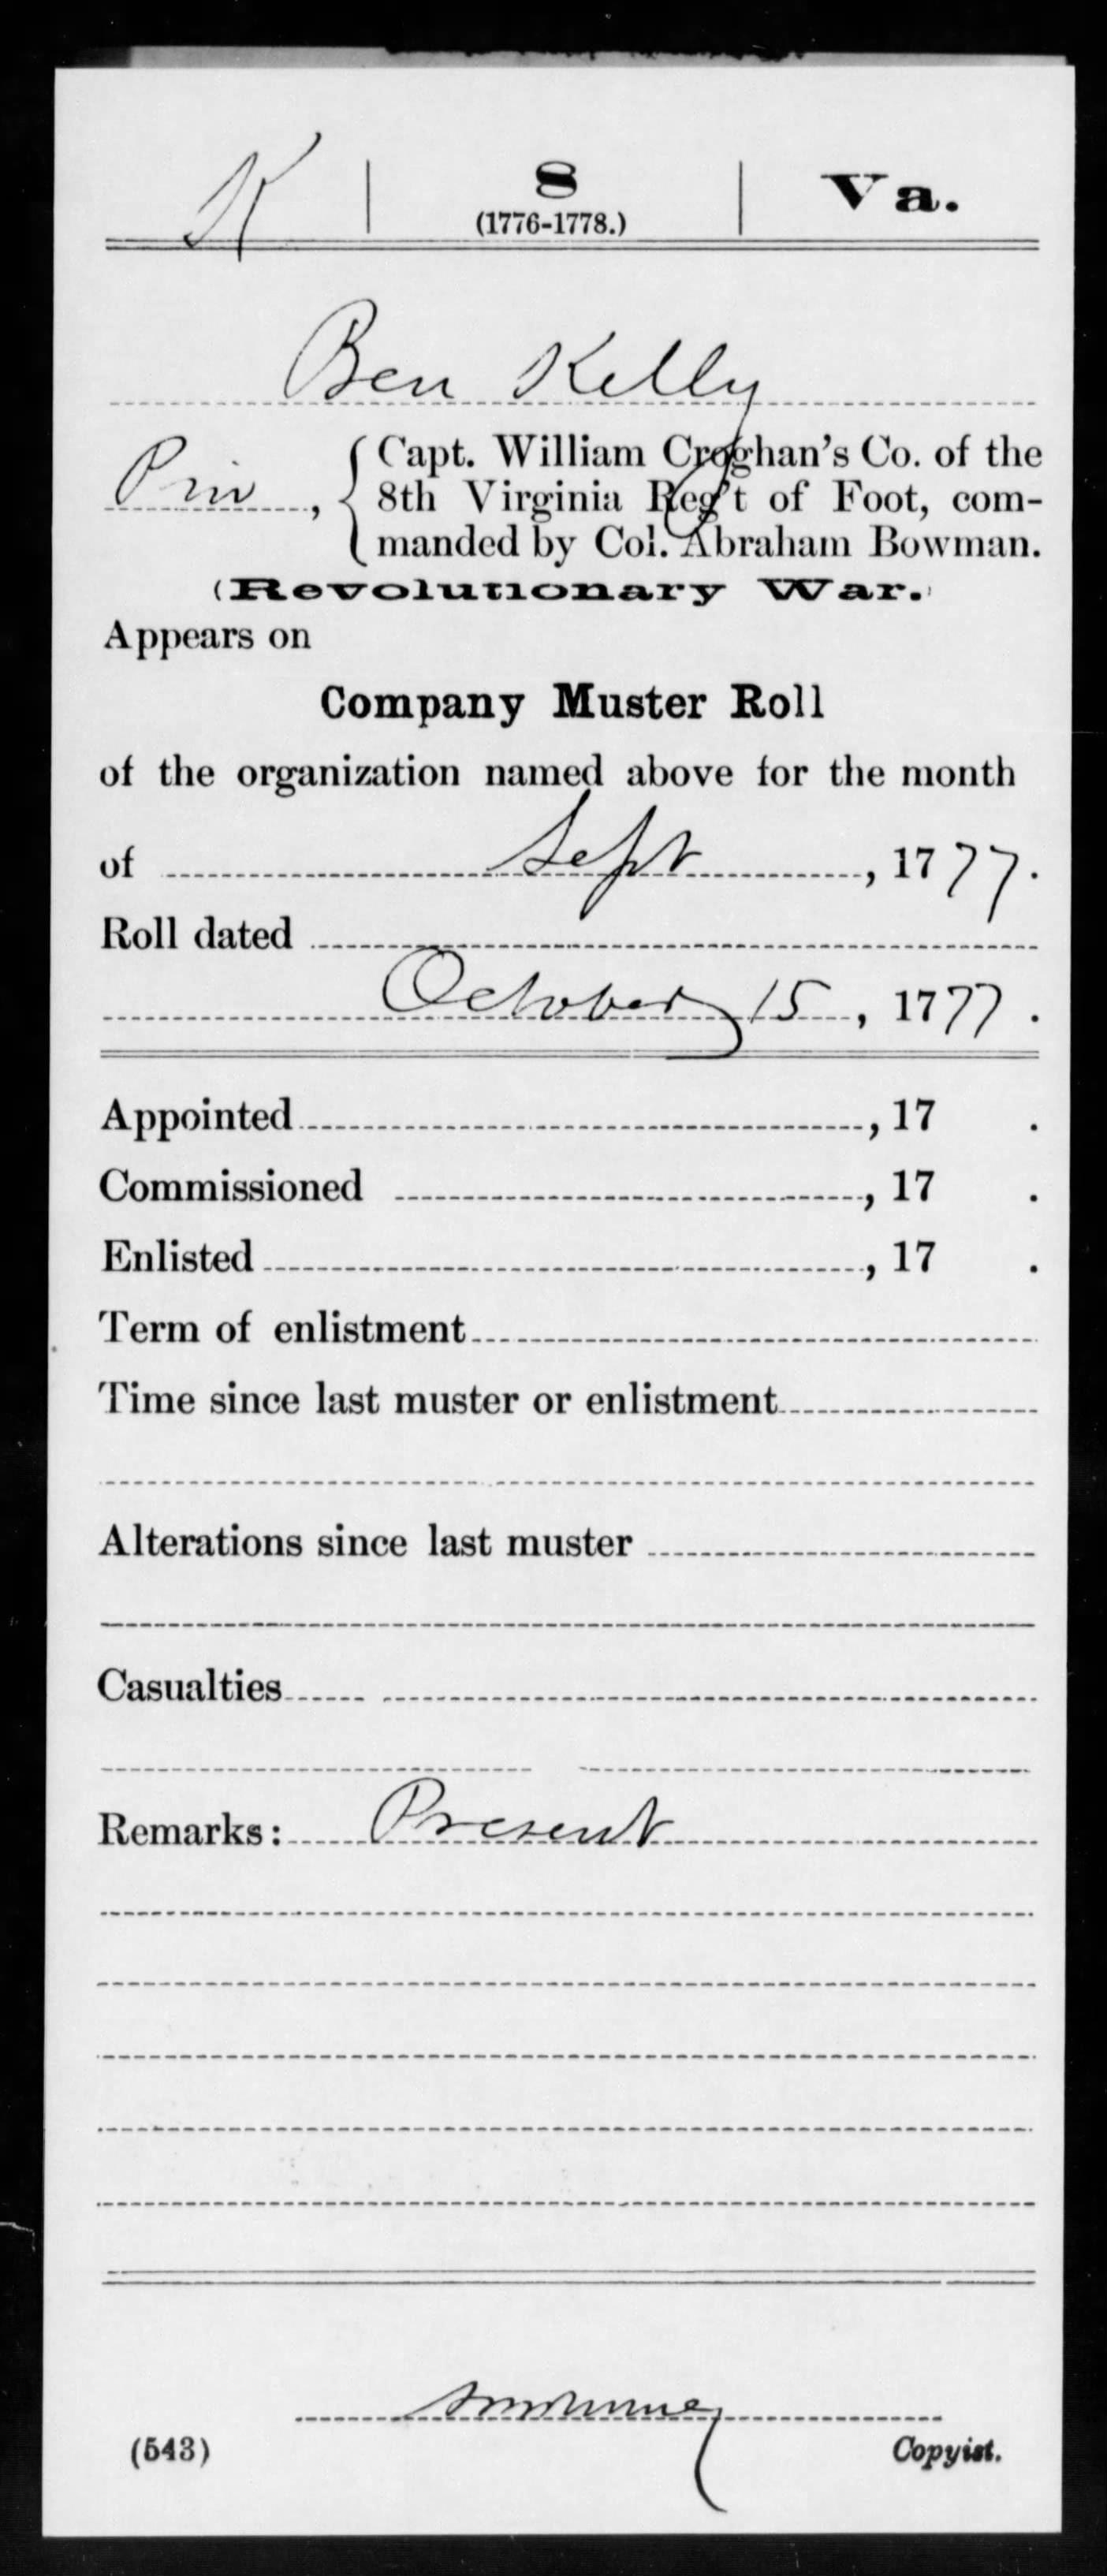 K | 8 | Va.
(1776-1778.)
Ben Kelly
Priv, { Capt. William Croghan's Co. of the
8th Virginia Reg't of Foot, com-
manded by Col. Abraham Bowman.
(Revolutionary War.)
Appears on
Company Muster Roll
of the organization named above for the month
of Sept, 1777.
Roll dated
October 15, 1777.
Appointed, 17 .
Commissioned, 17 .
Enlisted, 17 .
Term of enlistment
Time since last muster or enlistment
Alterations since last muster
Casualties
Remarks: Present
(543)
Copyist.